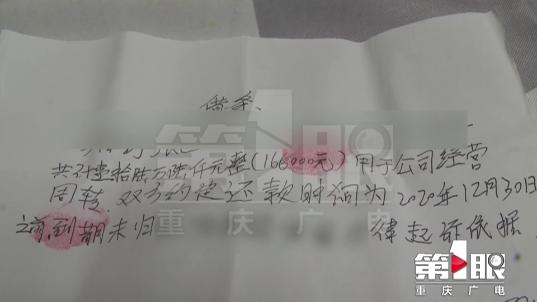 借条
共计壹拾陆万陆仟元整(166000元)用于公司经营
周转 双方约定还款时间为2020年12月30日
之前.到期未归 律起诉依据
第1眼
重庆广电
第1眼
重庆广电